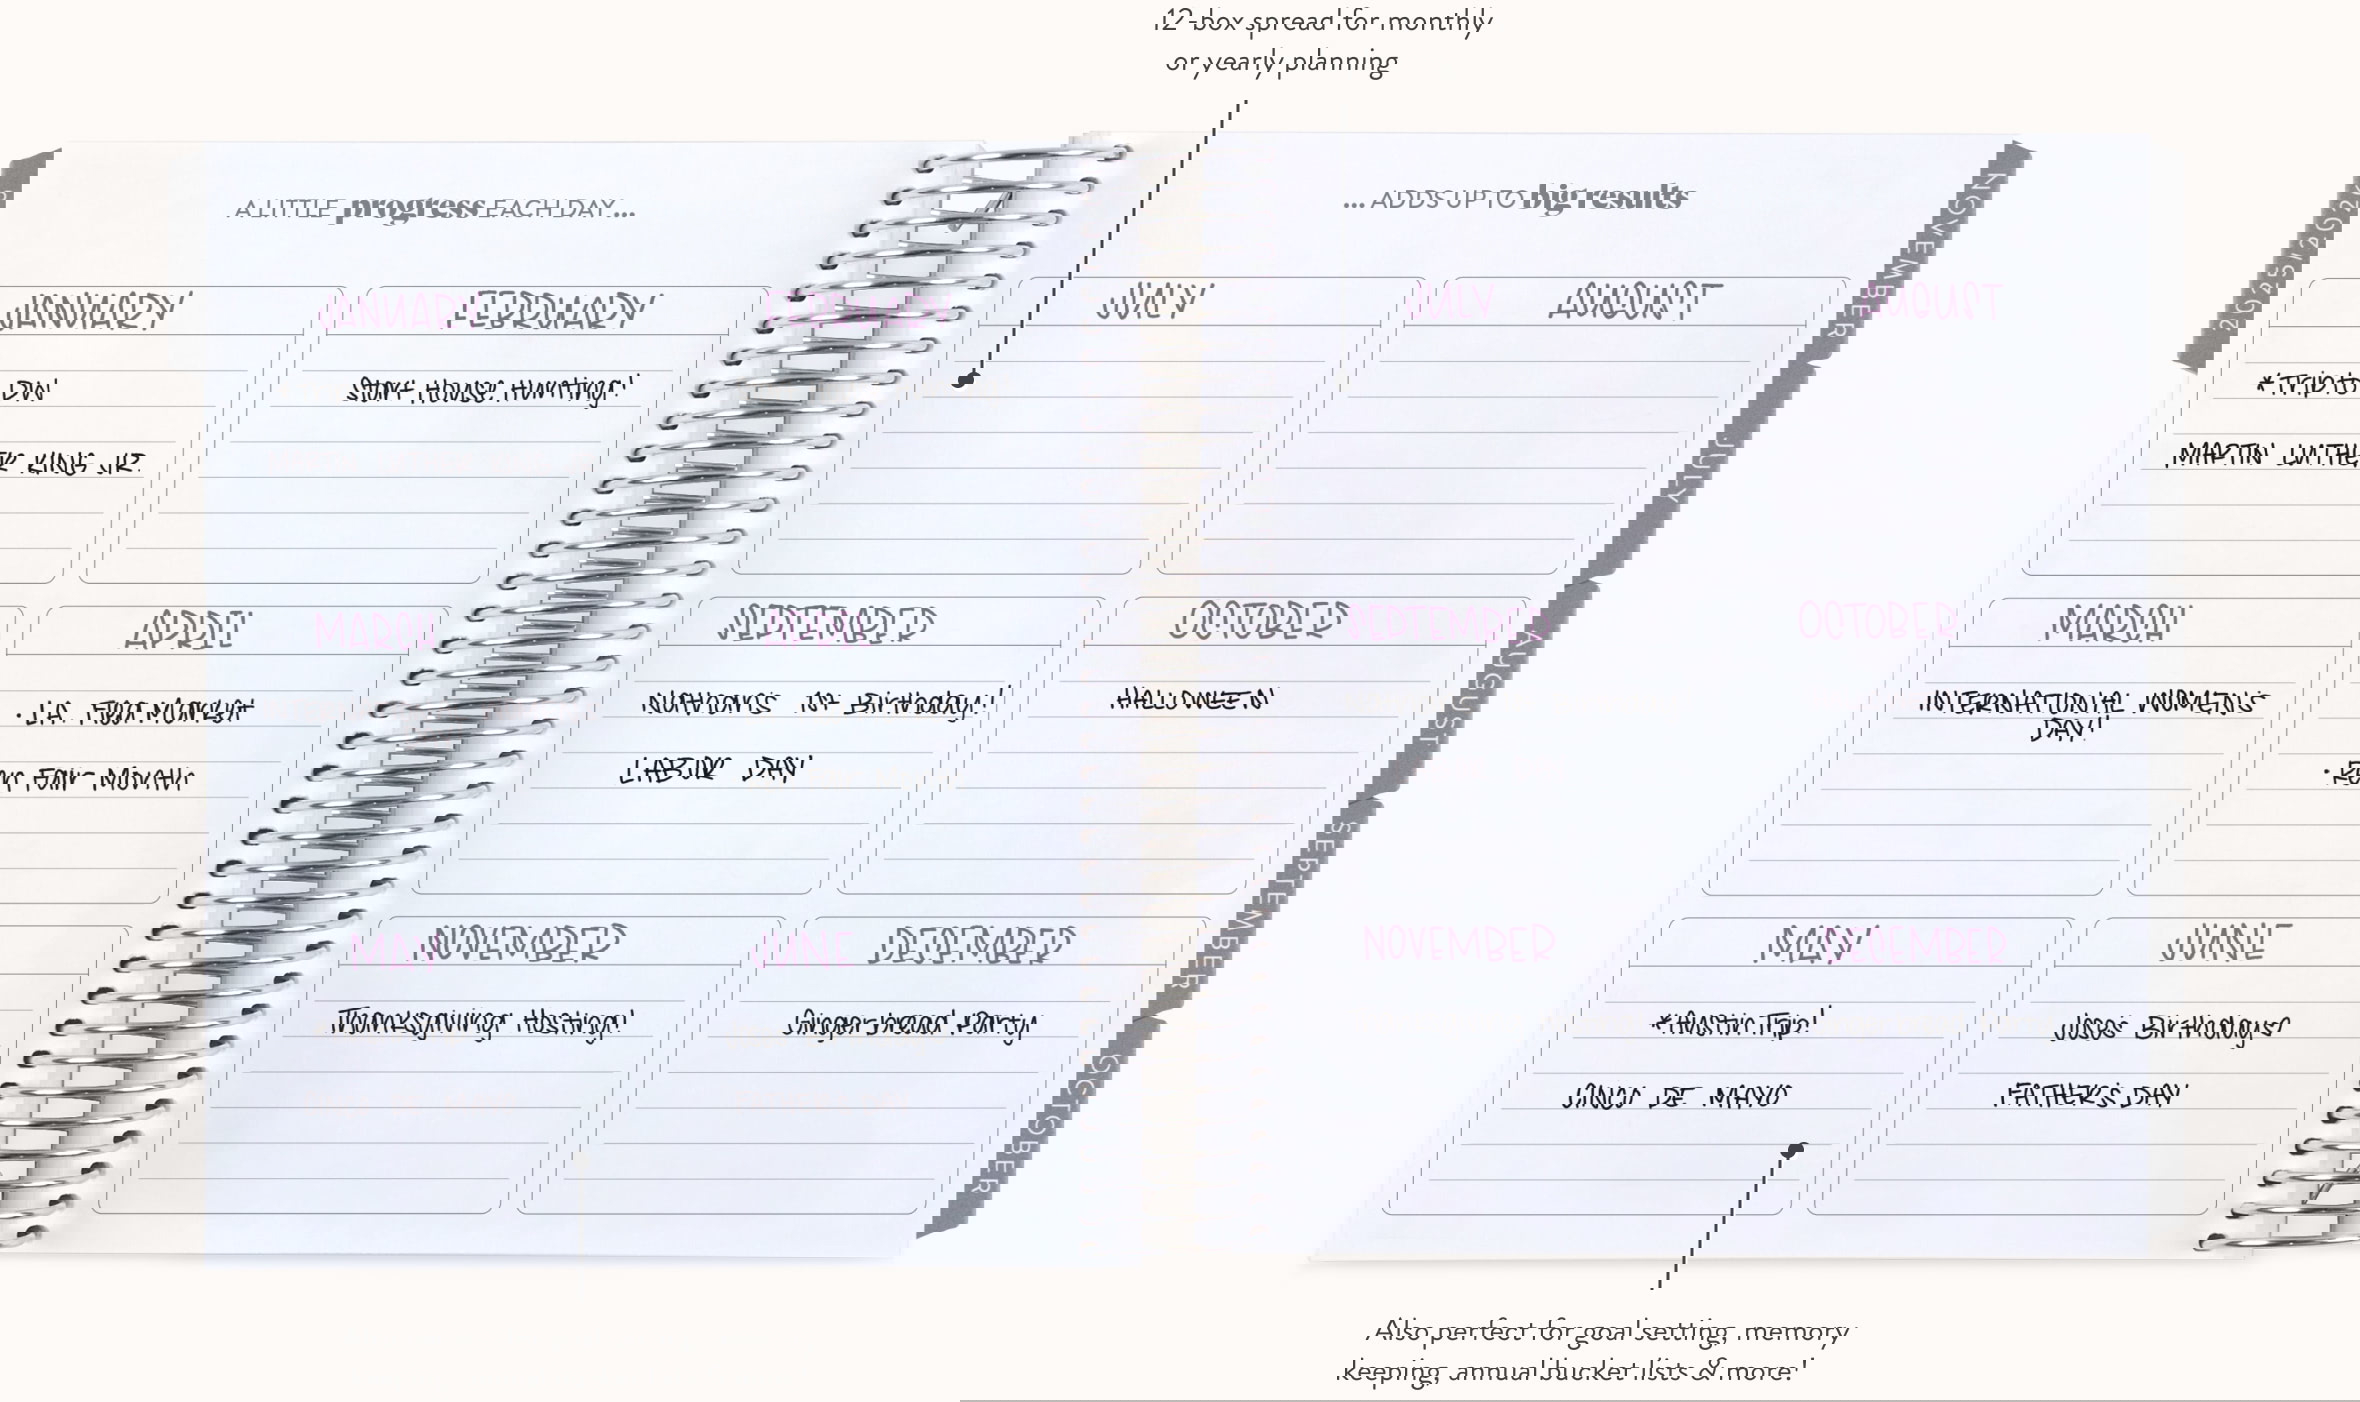 12-box spread for monthly
or yearly planning
A LITTLE progress EACH DAY ...
... ADDS UP TO big results
JANUARY
FEBRUARY
JULY
AUGUST
*Trip to
PW
Start House Hunting!
MARTIN LUTHER KING JR.
MARCH
APRIL
SEPTEMBER
OCTOBER
INTERNATIONAL WOMEN'S
DAY!
• L.A. Flea Market
Fair Month
1st Birthday!
HALLOWEEN
LABOR DAY
MAY
JUNE
NOVEMBER
DECEMBER
*Austin Trip!
Birthdays
Thanksgiving Hosting!
Gingerbread Party
CINCO DE MAYO
FATHER'S DAY
2025//202
JULY
AUGUST
SEPTEMBER
OCTOBER
NOVEMBER
Also perfect for goal setting, memory
keeping, annual bucket lists & more!